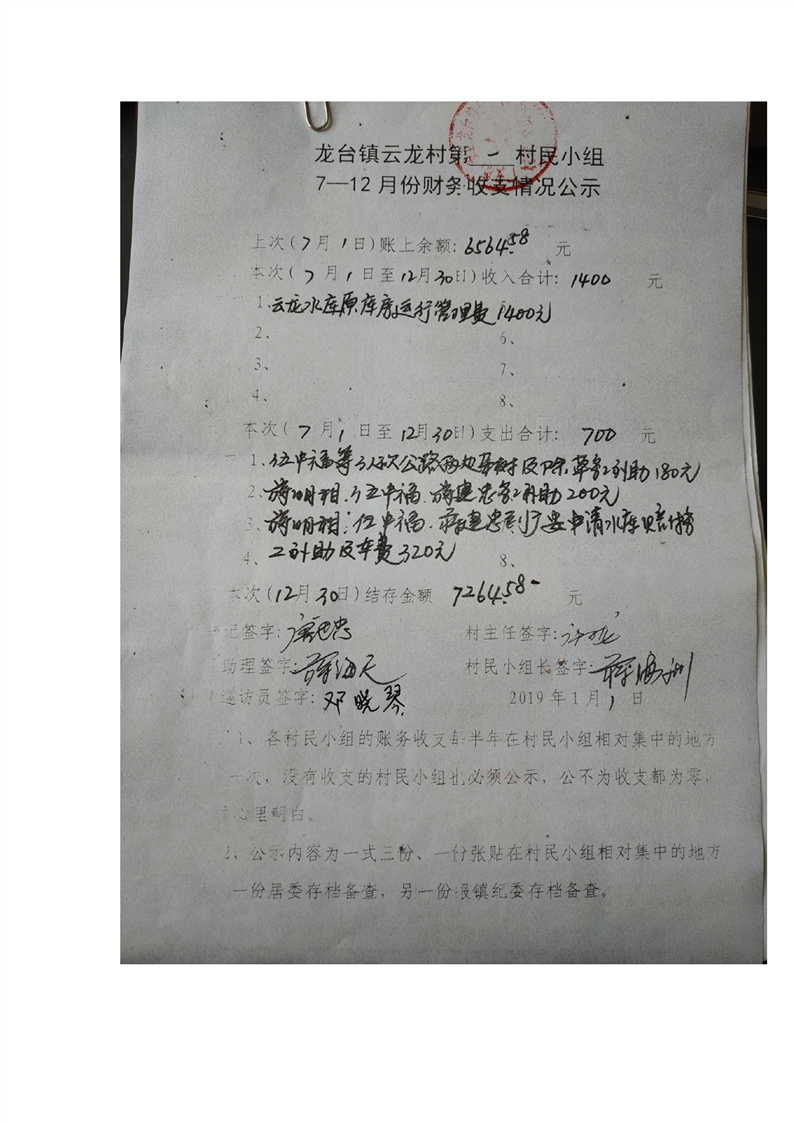 龙台镇云龙村第一村民小组
7—12月份财务收支情况公示
上次(7月1日)账上余额:6564.58元
本次(7月1日至12月30日)收入合计:1400元
1、云龙水库原库房运行管理费1400元
2、 6、
3、 7、
4、 8、
本次(7月1日至12月30日)支出合计:700元
1、伍中福等3人次公路两边 树及除草务工补助180元
2、蒋明相、伍中福、蒋建忠务工补助200元
3、蒋明相、伍中福、蒋建忠到广安申请水库赔偿务
4、工补助及车费320元 8、
本次(12月30日)结存金额 7264.58元
记签字: 村主任签字:
助理签字: 村民小组长签字:
巡访员签字:邓晓琴 2019年1月1日
1、各村民小组的账务收支每半年在村民小组相对集中的地方
一次,没有收支的村民小组也必须公示,公不为收支都为零,
心里明白。
2、公示内容为一式三份、一份张贴在村民小组相对集中的地方
一份居委存档备查,另一份报镇纪委存档备查。